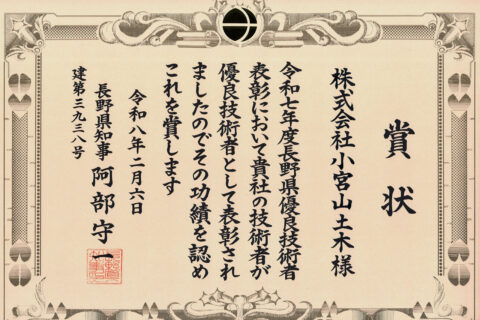 賞状
株式会社小宮山土木様
令和七年度長野県優良技術者
表彰において貴社の技術者が
優良技術者として表彰され
ましたのでその功績を認め
これを賞します
令和八年二月六日
長野県知事 阿部守一
建第三九三八号